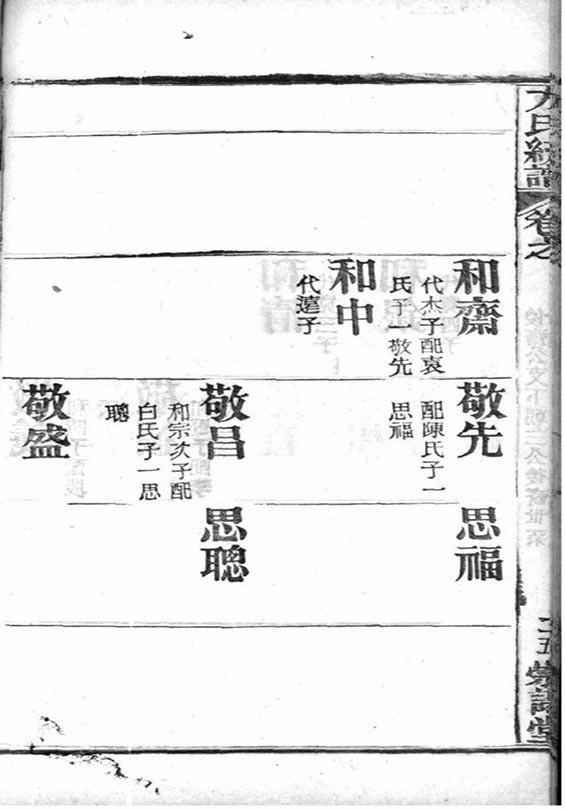 方氏統譜
卷之
二五
和齋
代杰子配袁
氏子一敬先
和中
代遠子
敬先
配陳氏子一
思福
敬昌
和宗次子配
白氏子一思
聰
敬盛
思福
思聰